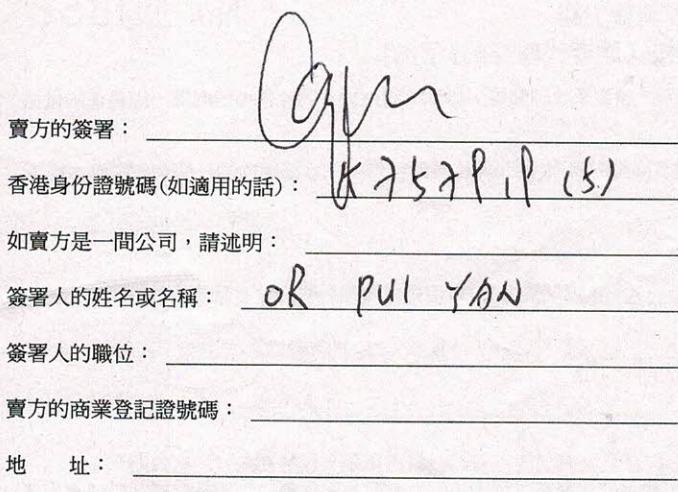 賣方的簽署：
香港身份證號碼(如適用的話)：
如賣方是一間公司，請述明：
簽署人的姓名或名稱： OR PUI YAN
簽署人的職位：
賣方的商業登記證號碼：
地　　址：